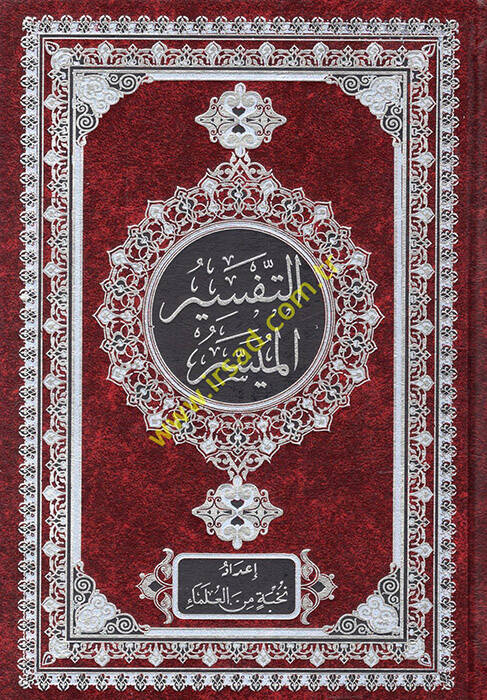 التَّفْسِيرُ
المُيَسَّرُ
www.irsad.com.tr
إعداد
نخبة من العلماء